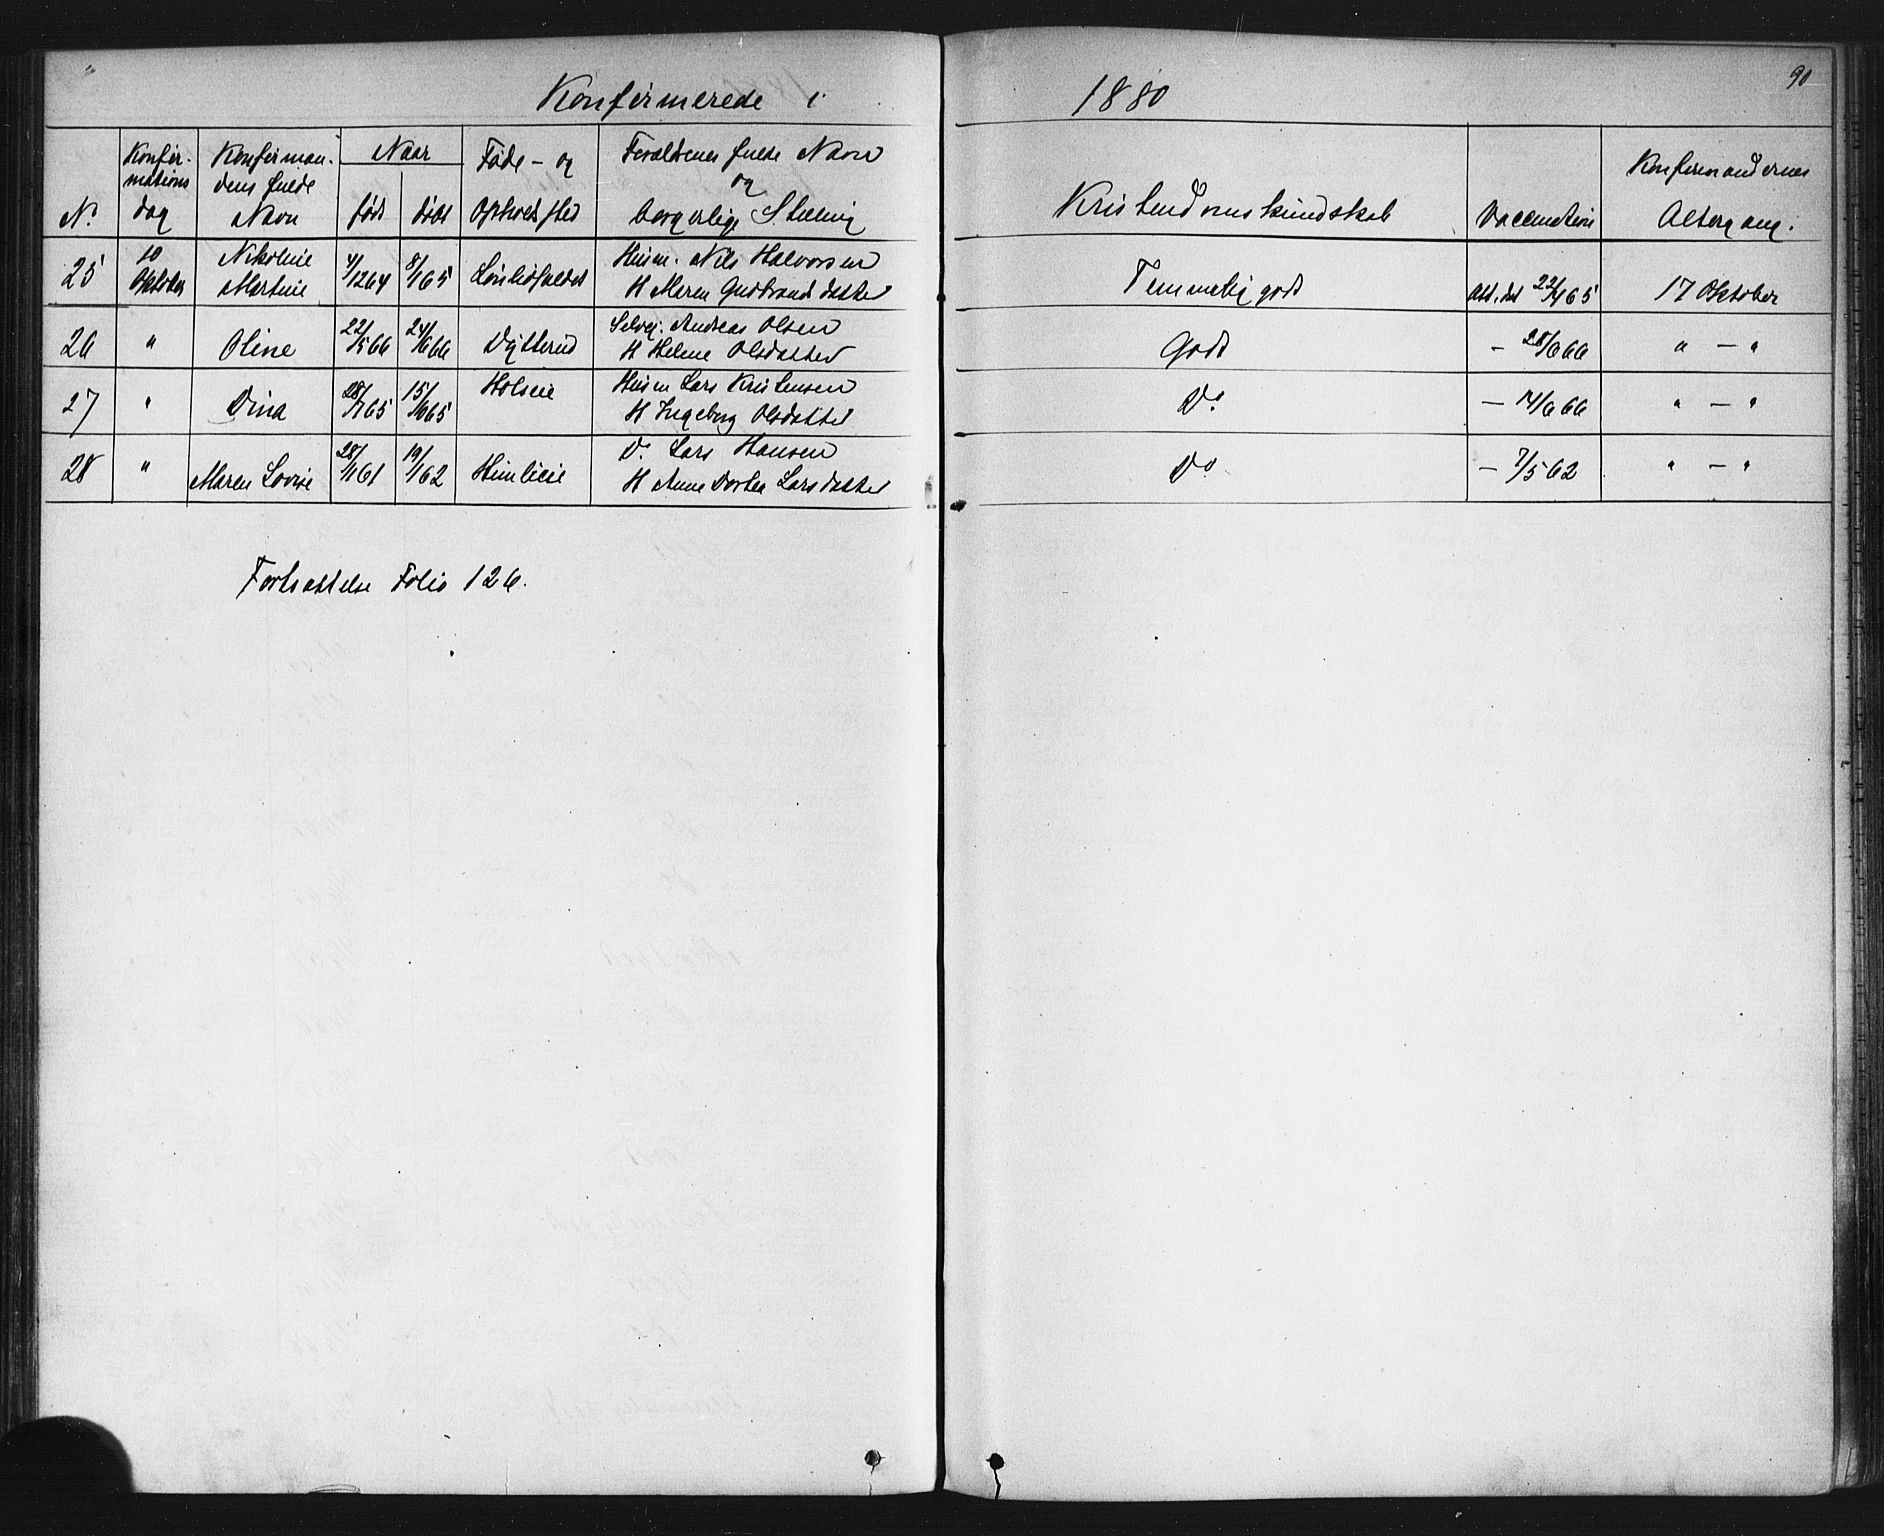 90
Konfirmerede i 1880
No.
Konfir-
mations
dag
Konfirman-
dens fulde
Navn
Naar
født
døbt
Føde- og
Opholdssted
Forældrenes fulde Navn
og
borgerlige Stilling
Kristendomskundskab
Vaccination
Konfirmandernes
Altergang.
25 10 Oktober Nikoline Martine 4/12 64 8/1 65 Husm. Nils Halvorsen
H Maren Gudbrandsdatter
Temmelig godt Att. dat 22/4 65 17 Oktober
26 " Oline 22/5 66 24/6 66 Dytterud Selvej. Andreas Olsen
H Helene Olsdatter
Godt — 28/6 66 " — "
27 " Dina 28/7 65 15/ 65 Holseie Husm Lars Kristensen
H Ingeborg Olsdatter
Do — 14/6 66 " — "
28 " Maren Lovise 28/11 61 19/1 62 Himlieie Do Lars Hansen
H Anne Dorthea Larsdatter
Do — 7/5 62 " — "
Fortsættelse Folio 126.